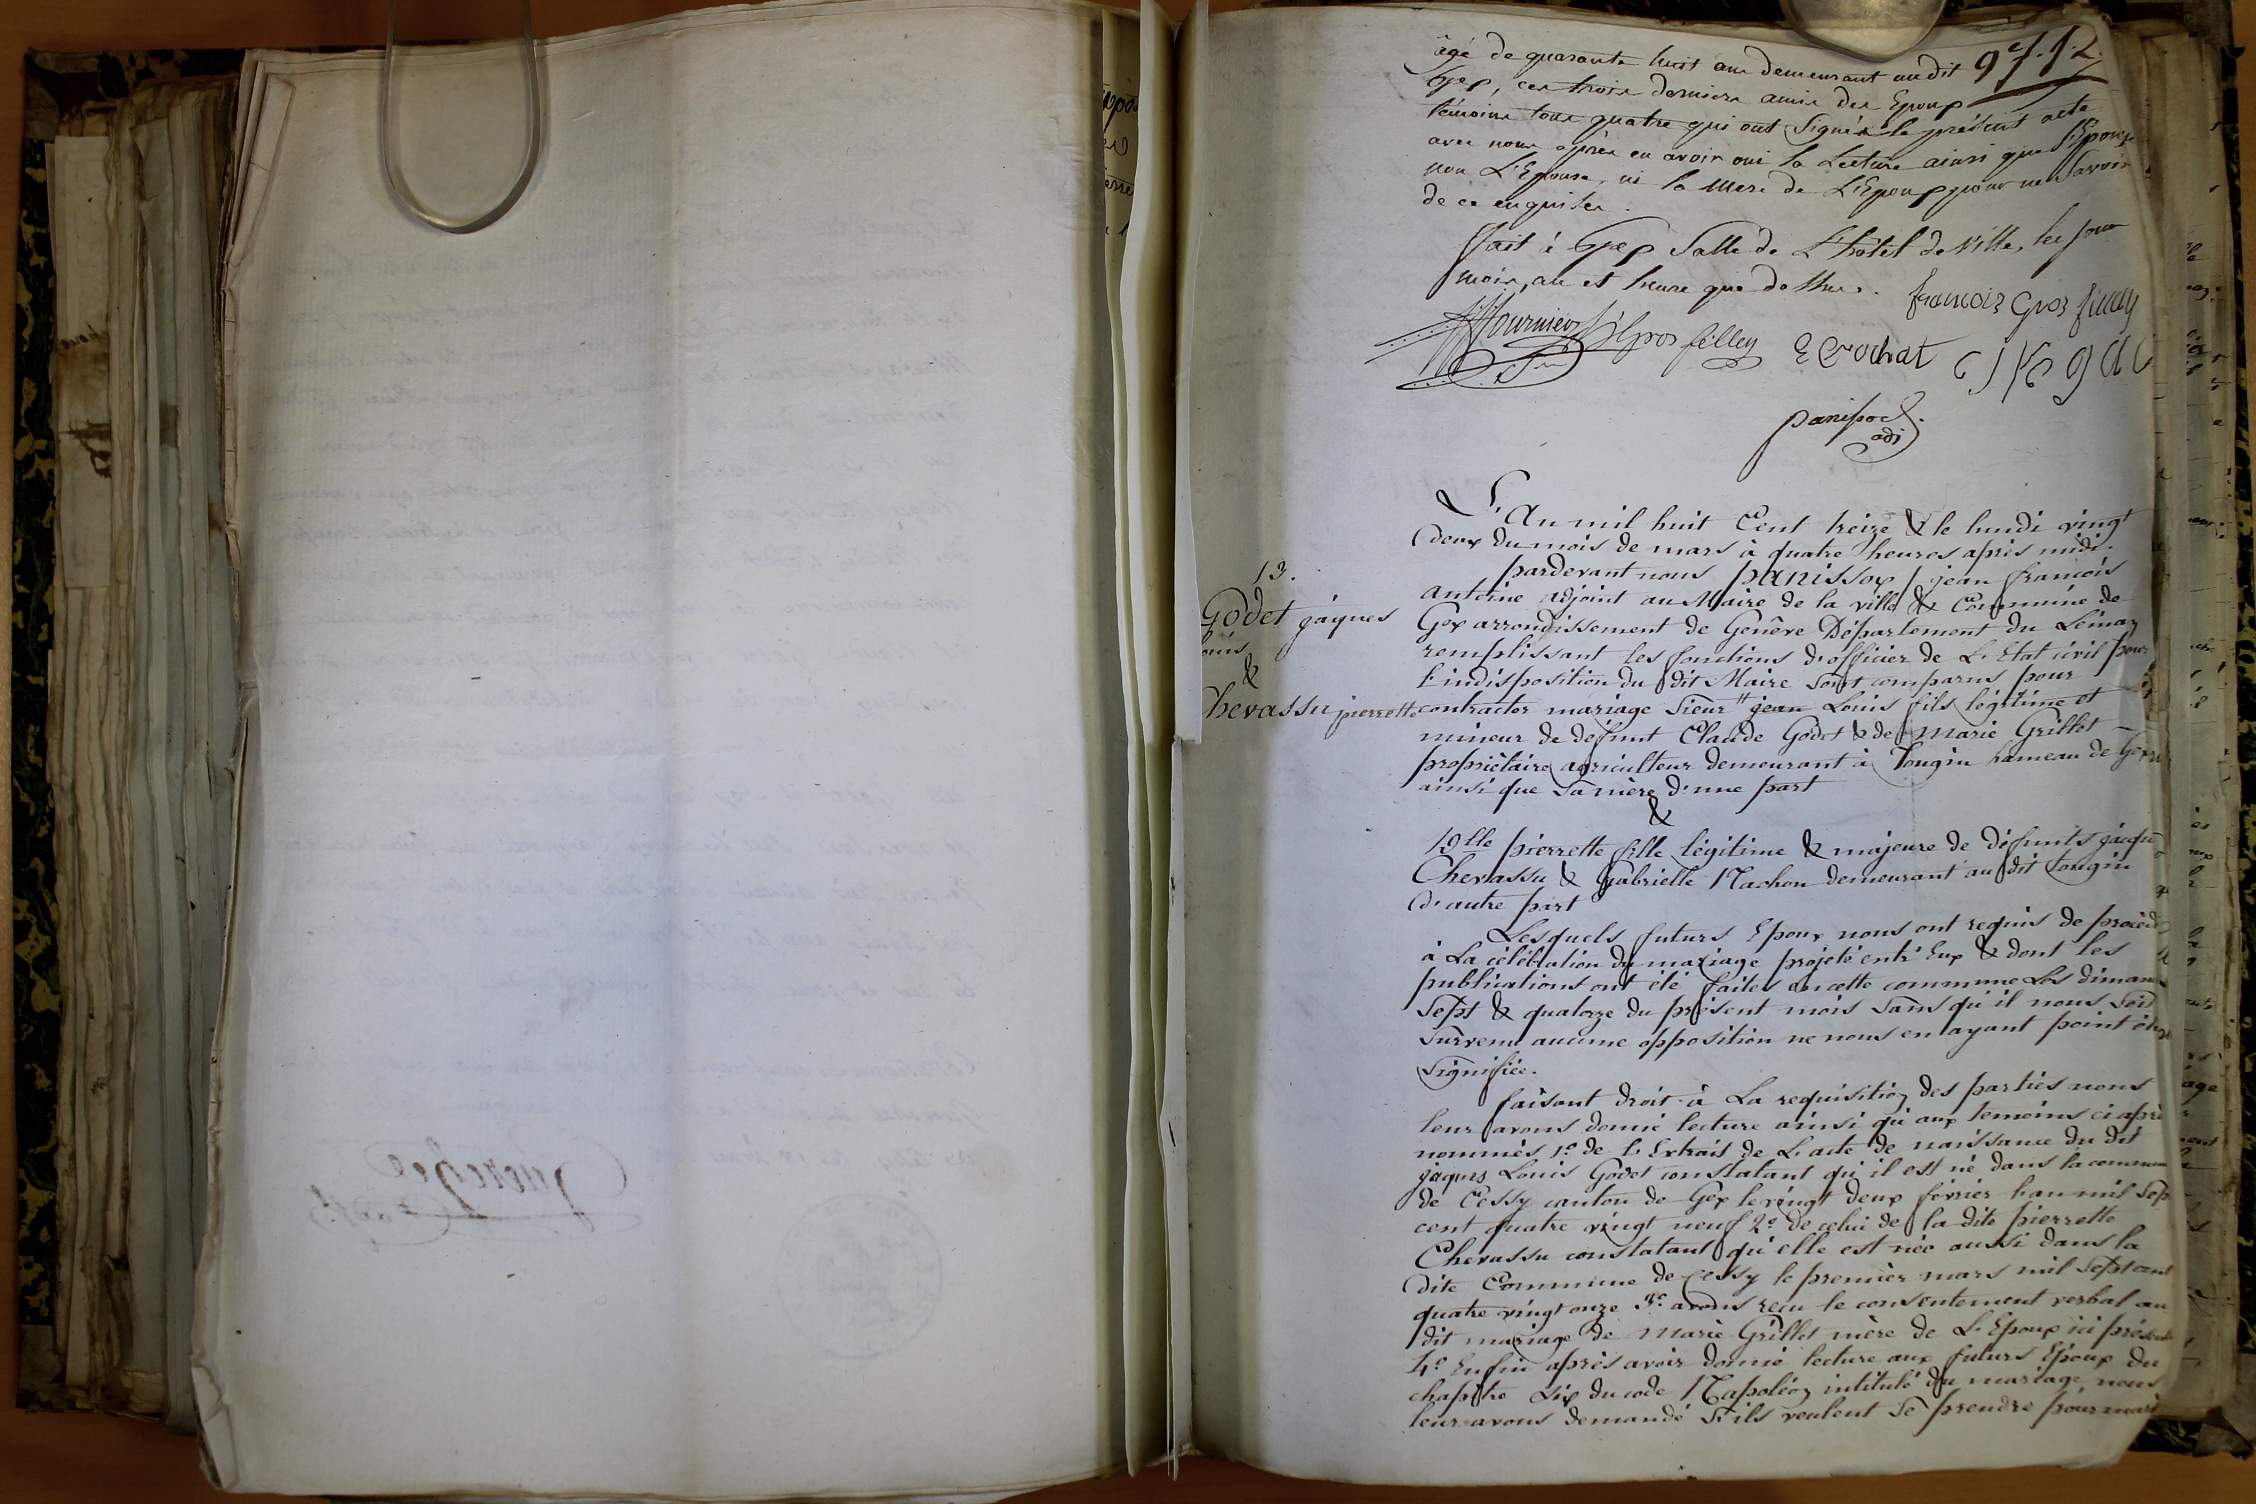 âgé de quarante huit ans demeurant audit
Gex, ces trois derniers amis des Epoux
témoins tous quatre qui ont signés le présent acte
avec nous après en avoir oui la Lecture ainsi que l'Epoux
non L'Epouse, ni la Mere de L'Epoux pour ne savoir
de ce enquises.
fait à Gex Salle de L'hôtel de Ville, les jour
mois, an et heure que dessus. francois Gros filley
fournier Gros filley E Crochat
panissod
adj
L'An mil huit Cent treize & le lundi vingt
deux du mois de mars à quatre heures après midi.
pardevant nous panissod jean françois
antoine adjoint au Maire de la ville & Commune de
Gex arrondissement de Genève Département du Léman
remplissant les fonctions d'officier de L'Etat civil pour
L'indisposition du dit Maire sont comparus pour
contracter mariage Sieur jean Louis fils légitime et
mineur de défunt Claude Godet & de Marie Grillet
propriétaire agriculteur demeurant à Tougin hameau de Gex
ainsi que sa mère d'une part
&
Dlle pierrette fille légitime & majeure de défunts jaques
Chevassu & Gabrielle Nachon demeurant au dit tougin
d'autre part
Lesquels futurs Epoux nous ont requis de procéd
à La célébration du mariage projeté entr'Eux & dont les
publications ont été faites en cette commune Les diman
Sept & quatorze du présent mois sans qu'il nous soit
Survenu aucune opposition ne nous en ayant point été
Signifiée.
faisant droit à La requisition des parties nous
leur avons donné lecture ainsi qu'aux temoins ci après
nommés 1.o de L'Extrait de L'acte de naissance du dit
jaques Louis Godet constatant qu'il est né dans la commune
de Cessy canton de Gex le vingt deux février l'an mil sep
cent quatre vingt neuf 2.o de celui de la dite pierrette
Chevassu constatant qu'elle est née aussi dans la
dite Commune de Cessy le premier mars mil sept cent
quatre vingt onze 3.o avons reçu le consentement verbal au
dit mariage de Marie Grillet mère de L'Epoux ici présente
4.o Enfin après avoir donné lecture aux futurs Epoux du
chapitre six du code Napoléon intitulé du mariage nous
leur avons demandé s'ils veulent se prendre pour mari
13.
Godet jaques
Louis
&
Chevassu pierrette